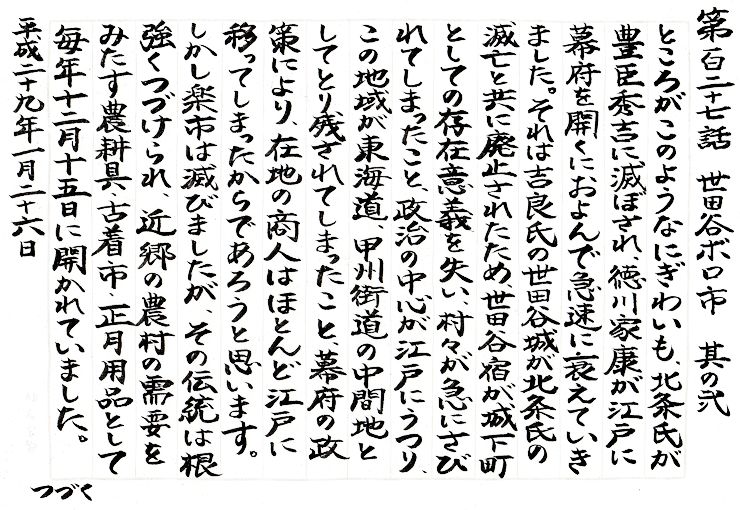 第百二十七話　世田谷ボロ市　其の弐
ところがこのようなにぎわいも、北条氏が
豊臣秀吉に滅ぼされ、徳川家康が江戸に
幕府を開くに、およんで急速に衰えていき
ました。それは吉良氏の世田谷城が北条氏の
滅亡と共に廃止されたため、世田谷宿が城下町
としての存在意義を失い、村々が急にさび
れてしまったこと、政治の中心が江戸にうつり、
この地域が東海道、甲州街道の中間地と
してとり残されてしまったこと、幕府の政
策により、在地の商人はほとんど江戸に
移ってしまったからであろうと思います。
しかし楽市は滅びましたが、その伝統は根
強くつづけられ、近郷の農村の需要を
みたす農耕具・古着市・正月用品として
毎年十二月十五日に開かれていました。
平成二十九年一月二十六日
つづく